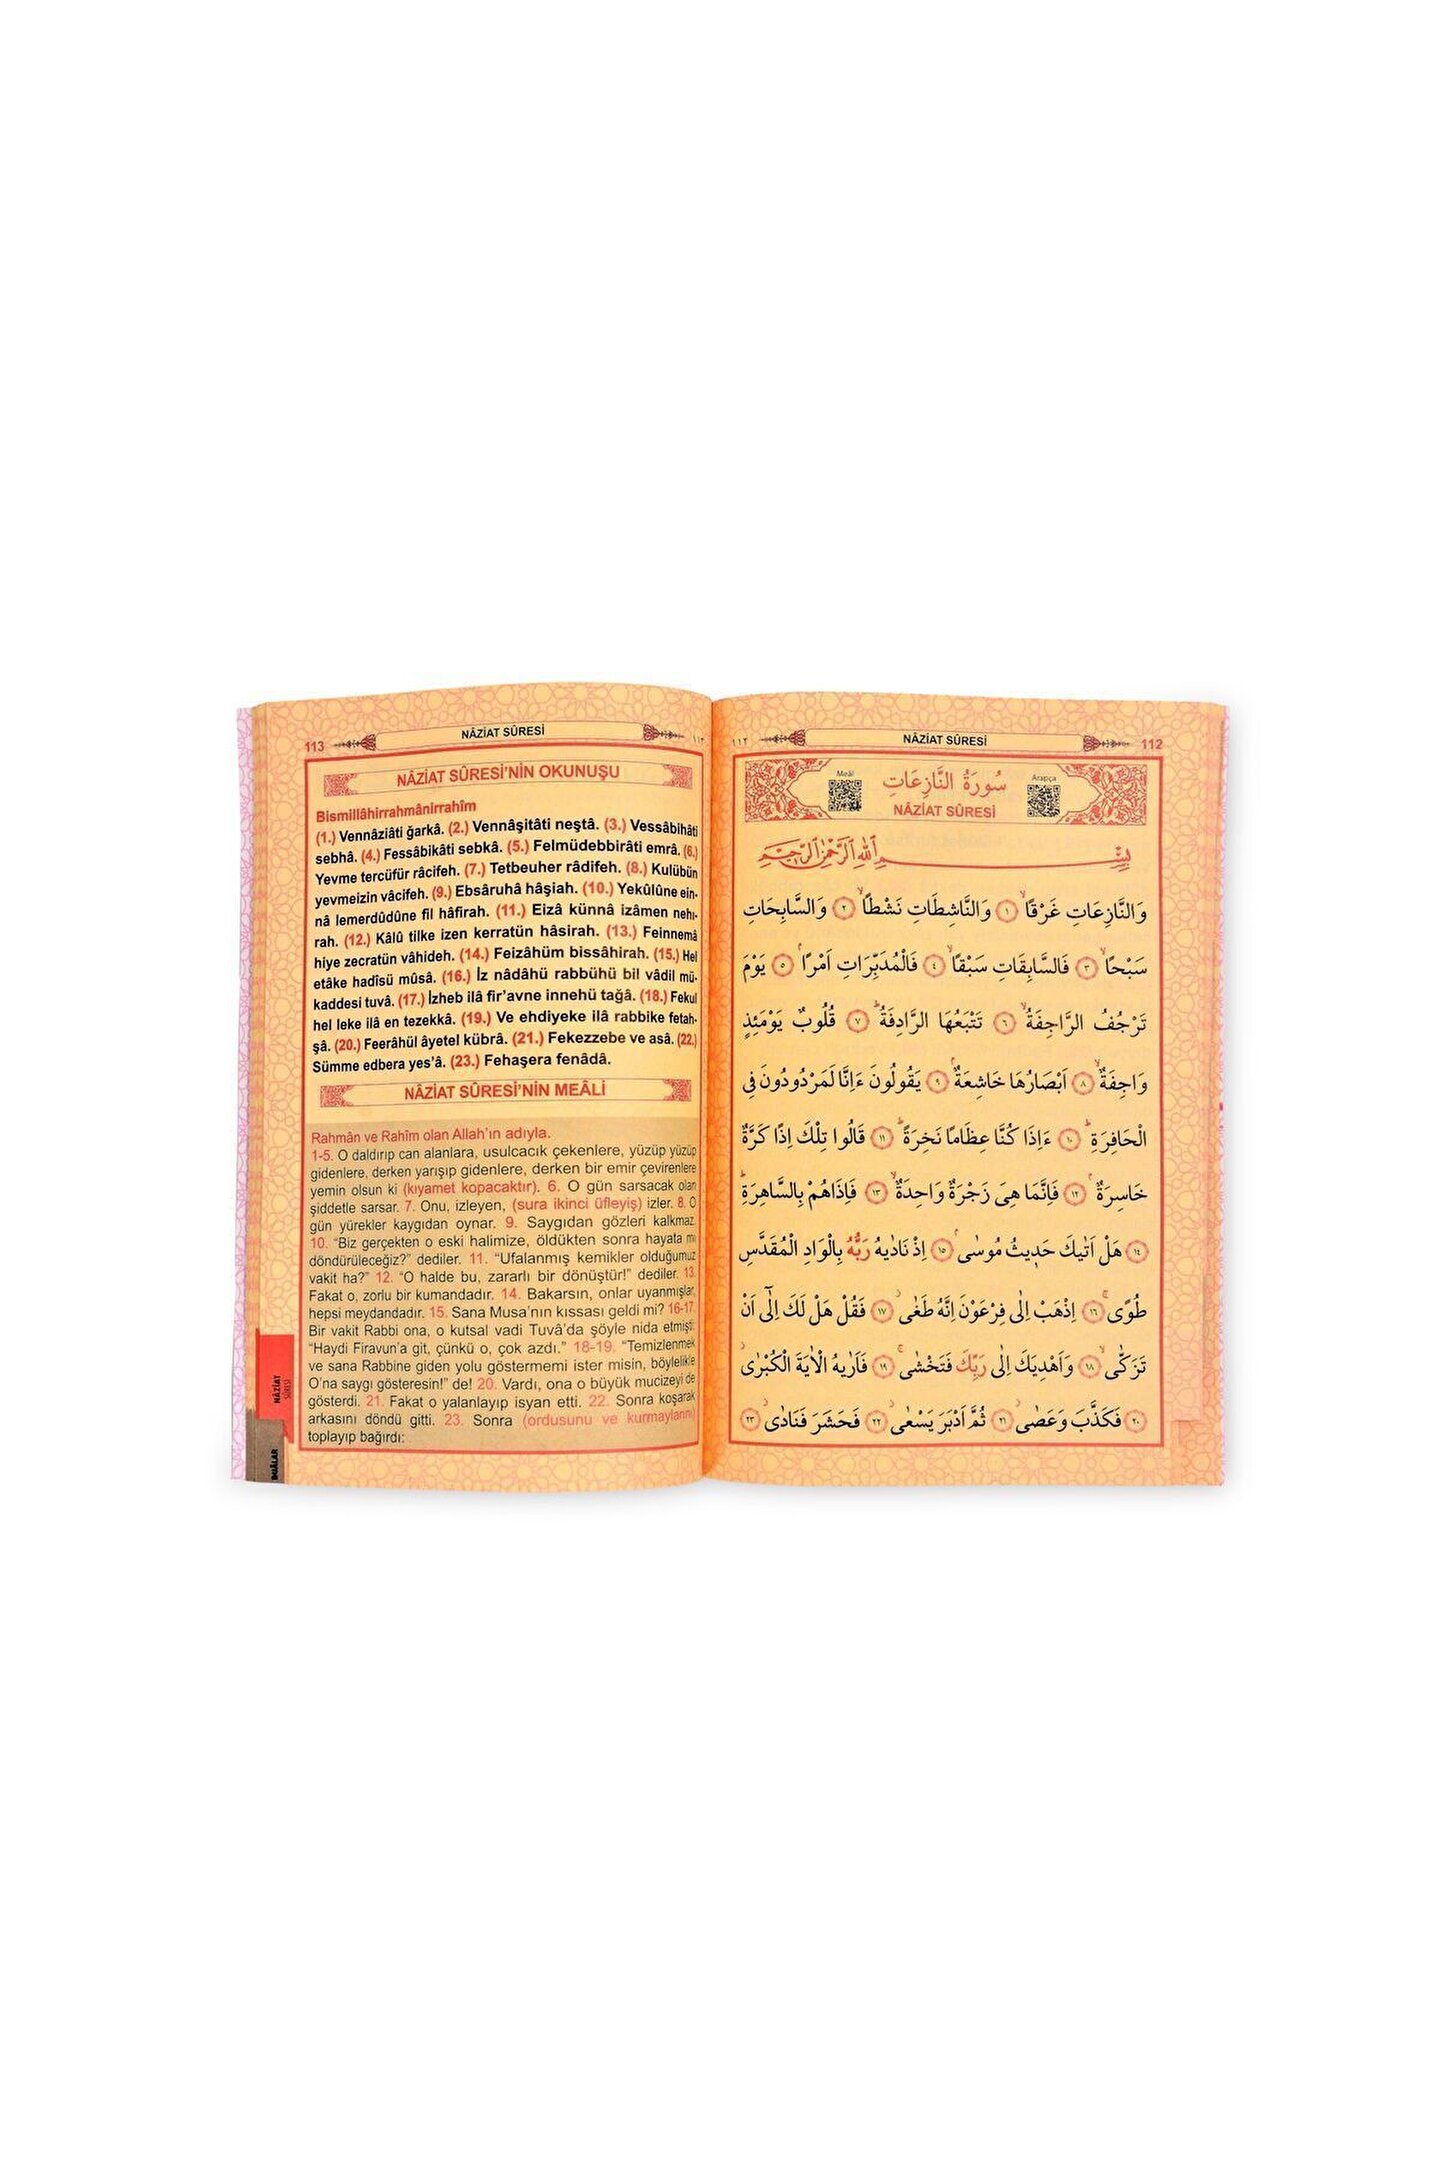 113 NÂZİAT SÛRESİ ١١٣
NÂZİAT SÛRESİ'NİN OKUNUŞU
Bismillâhirrahmânirrahîm
(1.) Vennâziâti ğarkâ. (2.) Vennâşitâti neştâ. (3.) Vessâbihâti
sebhâ. (4.) Fessâbikâti sebkâ. (5.) Felmüdebbirâti emrâ. (6.)
Yevme tercüfür râcifeh. (7.) Tetbeuher râdifeh. (8.) Kulübün
yevmeizin vâcifeh. (9.) Ebsâruhâ hâşiah. (10.) Yekûlûne ein-
nâ lemerdûdûne fil hâfirah. (11.) Eizâ künnâ izâmen nehı-
rah. (12.) Kâlû tilke izen kerratün hâsirah. (13.) Feinnemâ
hiye zecratün vâhideh. (14.) Feizâhüm bissâhirah. (15.) Hel
etâke hadîsü mûsâ. (16.) İz nâdâhü rabbühü bil vâdil mü-
kaddesi tuvâ. (17.) İzheb ilâ fir'avne innehü tağâ. (18.) Fekul
hel leke ilâ en tezekkâ. (19.) Ve ehdiyeke ilâ rabbike fetah-
şâ. (20.) Feerâhül âyetel kübrâ. (21.) Fekezzebe ve asâ. (22.)
Sümme edbera yes'â. (23.) Fehaşera fenâdâ.
NÂZİAT SÛRESİ'NİN MEÂLİ
Rahmân ve Rahîm olan Allah'ın adıyla.
1-5. O daldırıp can alanlara, usulcacık çekenlere, yüzüp yüzüp
gidenlere, derken yarışıp gidenlere, derken bir emir çevirenlere
yemin olsun ki (kıyamet kopacaktır). 6. O gün sarsacak olan
şiddetle sarsar. 7. Onu, izleyen, (sura ikinci üfleyiş) izler. 8. O
gün yürekler kaygıdan oynar. 9. Saygıdan gözleri kalkmaz.
10. "Biz gerçekten o eski halimize, öldükten sonra hayata mı
döndürüleceğiz?" dediler. 11. "Ufalanmış kemikler olduğumuz
vakit ha?" 12. "O halde bu, zararlı bir dönüştür!" dediler. 13.
Fakat o, zorlu bir kumandadır. 14. Bakarsın, onlar uyanmışlar,
hepsi meydandadır. 15. Sana Musa'nın kıssası geldi mi? 16-17.
Bir vakit Rabbi ona, o kutsal vadi Tuvâ'da şöyle nida etmişti:
"Haydi Firavun'a git, çünkü o, çok azdı." 18-19. "Temizlenmek
ve sana Rabbine giden yolu göstermemi ister misin, böylelikle
O'na saygı gösteresin!" de! 20. Vardı, ona o büyük mucizeyi de
gösterdi. 21. Fakat o yalanlayıp isyan etti. 22. Sonra koşarak
arkasını döndü gitti. 23. Sonra (ordusunu ve kurmaylarını)
toplayıp bağırdı:
NÂZİAT
SÛRESİ
DUÂLAR
١١٢ NÂZİAT SÛRESİ 112
Meâl
Arapça
سُورَةُ النَّازِعَاتِ
NÂZİAT SÛRESİ
بِسْمِ اللّٰهِ الرَّحْمٰنِ الرَّحِيمِ
وَالنَّازِعَاتِ غَرْقًاۙ ١ وَالنَّاشِطَاتِ نَشْطًاۙ ٢ وَالسَّابِحَاتِ
سَبْحًاۙ ٣ فَالسَّابِقَاتِ سَبْقًاۙ ٤ فَالْمُدَبِّرَاتِ اَمْرًاۢ ٥ يَوْمَ
تَرْجُفُ الرَّاجِفَةُۙ ٦ تَتْبَعُهَا الرَّادِفَةُۜ ٧ قُلُوبٌ يَوْمَئِذٍ
وَاجِفَةٌۙ ٨ اَبْصَارُهَا خَاشِعَةٌۢ ٩ يَقُولُونَ ءَاِنَّا لَمَرْدُودُونَ فِى
الْحَافِرَةِۜ ١٠ ءَاِذَا كُنَّا عِظَامًا نَخِرَةًۜ ١١ قَالُوا تِلْكَ اِذًا كَرَّةٌ
خَاسِرَةٌۢ ١٢ فَاِنَّمَا هِىَ زَجْرَةٌ وَاحِدَةٌۙ ١٣ فَاِذَاهُمْ بِالسَّاهِرَةِۜ
١٤ هَلْ اَتٰيكَ حَدِيثُ مُوسٰىۢ ١٥ اِذْ نَادٰيهُ رَبُّهُ بِالْوَادِ الْمُقَدَّسِ
طُوًىۚ ١٦ اِذْهَبْ اِلٰى فِرْعَوْنَ اِنَّهُ طَغٰىۘ ١٧ فَقُلْ هَلْ لَكَ اِلٰٓى اَنْ
تَزَكّٰىۙ ١٨ وَاَهْدِيَكَ اِلٰى رَبِّكَ فَتَخْشٰىۚ ١٩ فَاَرٰيهُ الْاٰيَةَ الْكُبْرٰىۘ
٢٠ فَكَذَّبَ وَعَصٰىۘ ٢١ ثُمَّ اَدْبَرَ يَسْعٰىۘ ٢٢ فَحَشَرَ فَنَادٰىۘ ٢٣